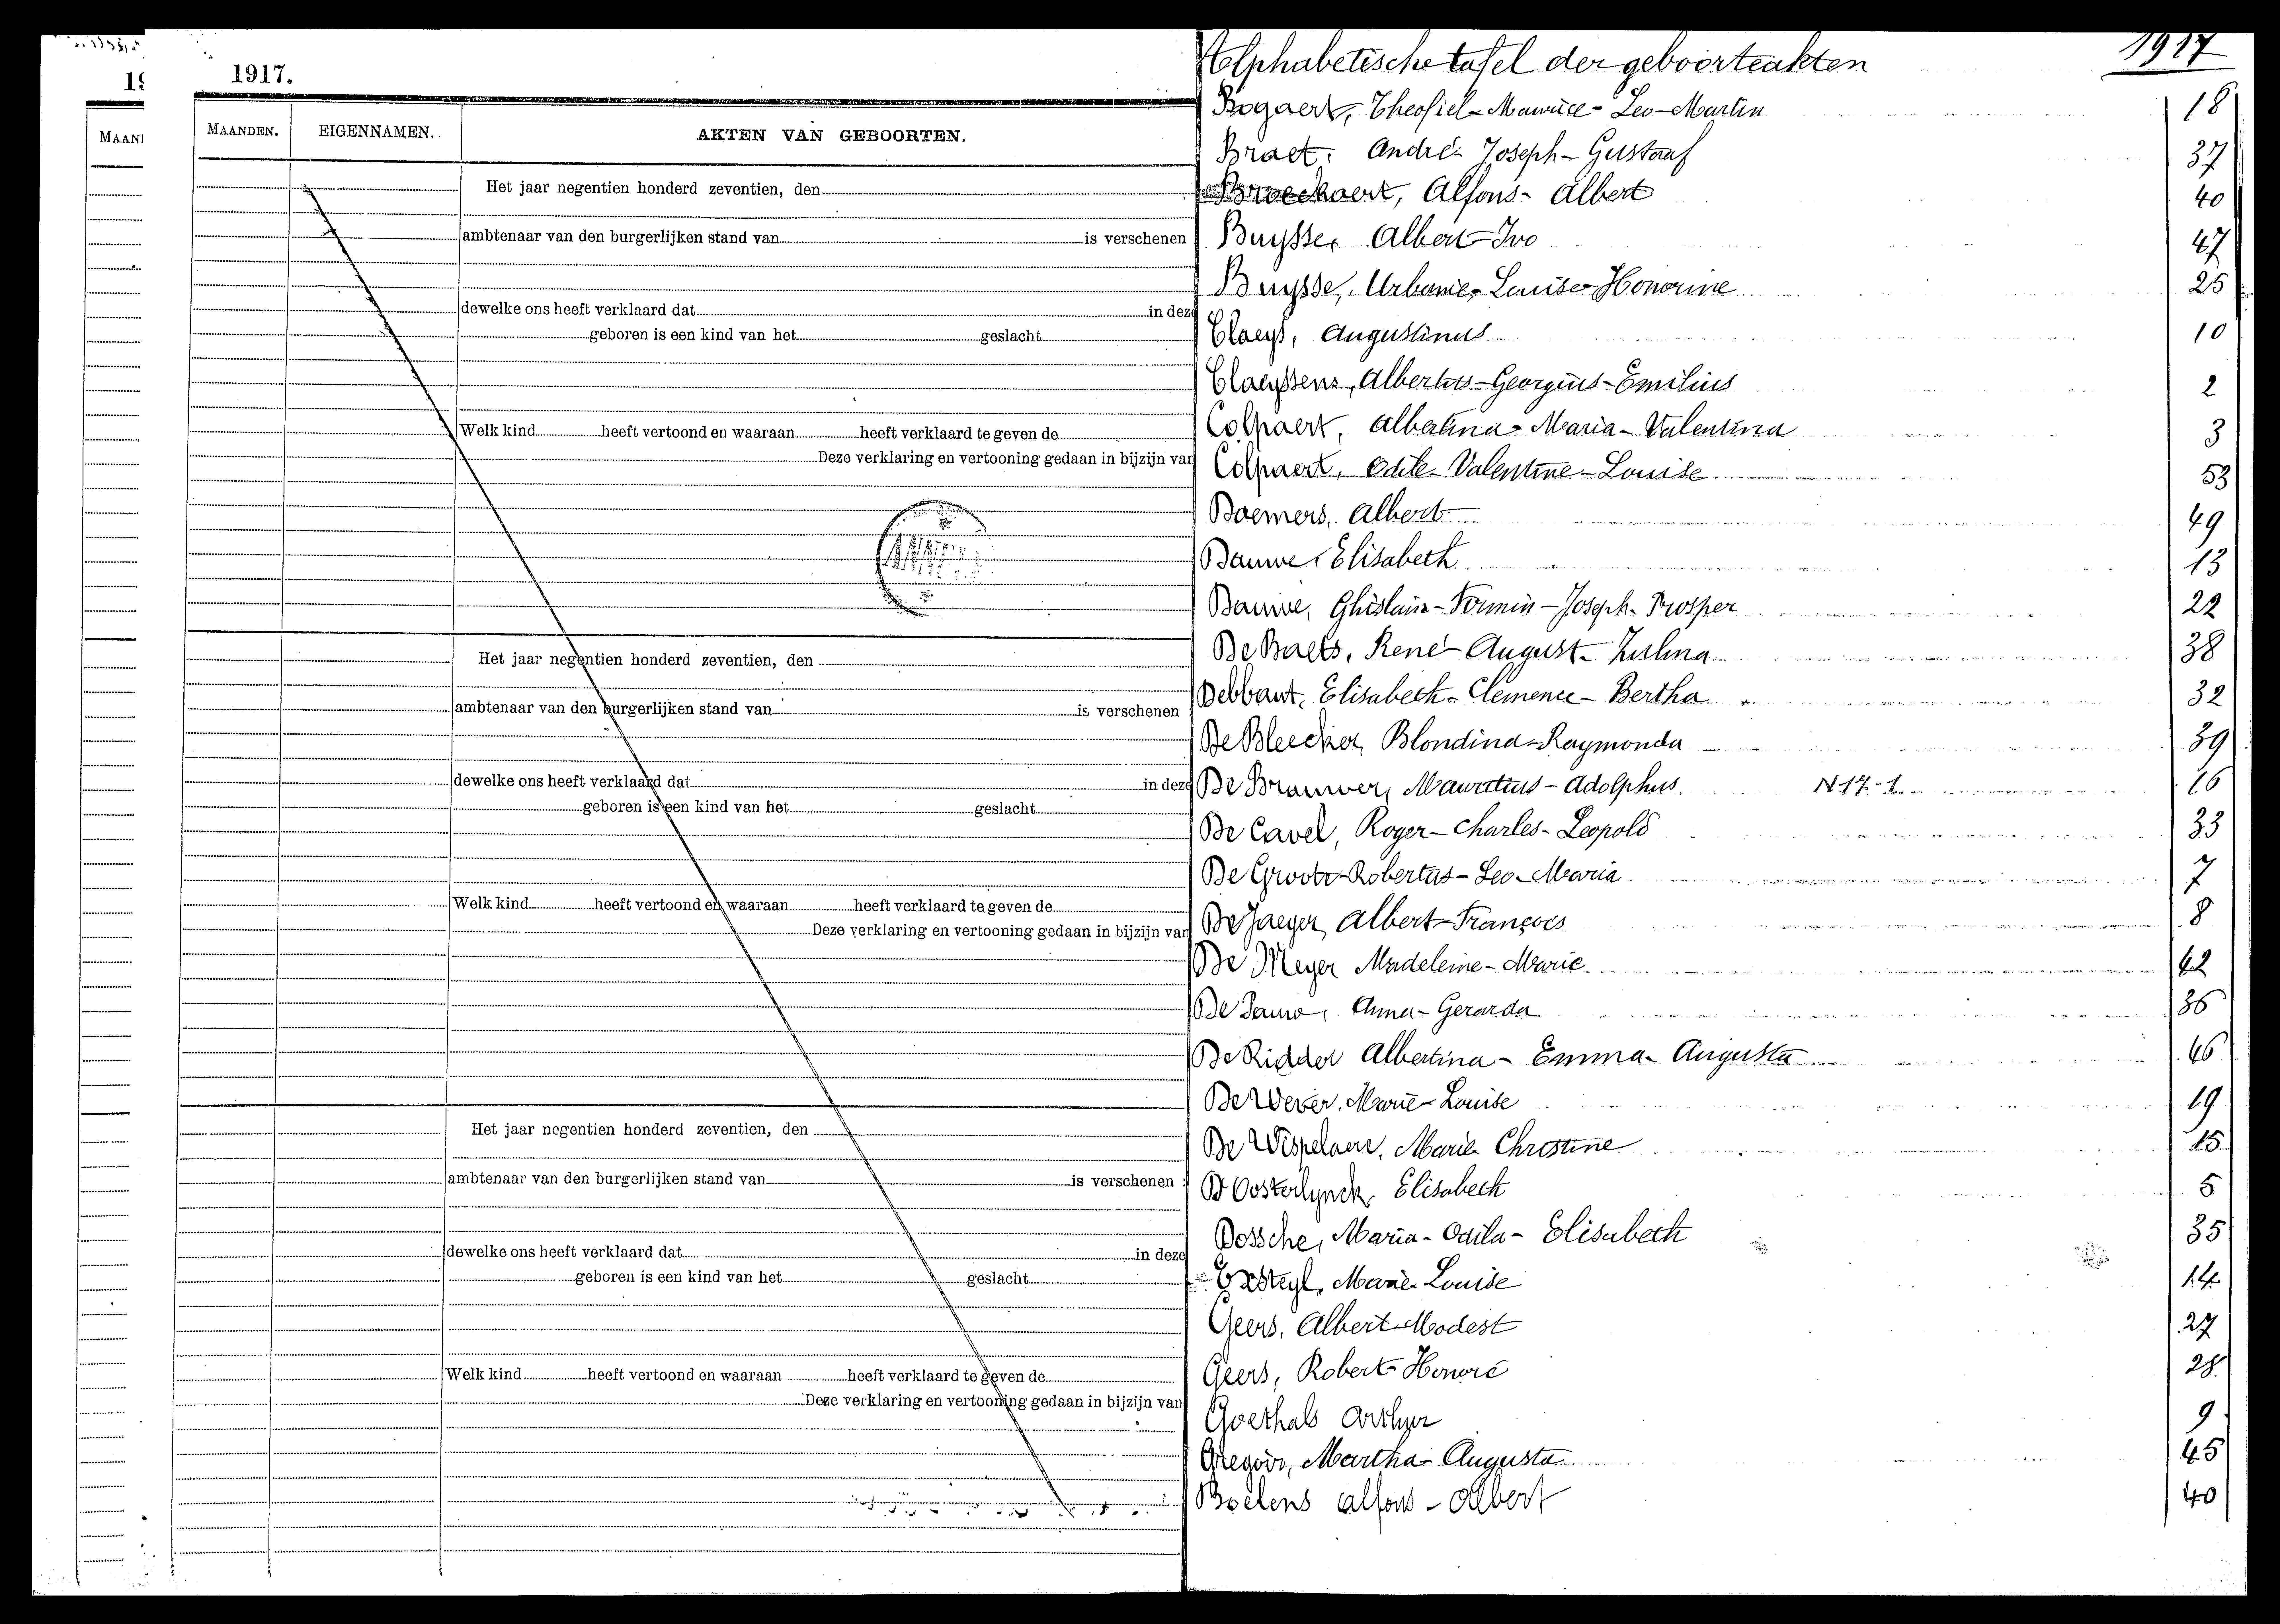 1917.
MAANDEN.
EIGENNAMEN.
AKTEN VAN GEBOORTEN.
Het jaar negentien honderd zeventien, den
ambtenaar van den burgerlijken stand van is verschenen
dewelke ons heeft verklaard dat in deze
geboren is een kind van het geslacht
Welk kind heeft vertoond en waaraan heeft verklaard te geven de
Deze verklaring en vertooning gedaan in bijzijn van
Het jaar negentien honderd zeventien, den
ambtenaar van den burgerlijken stand van is verschenen
dewelke ons heeft verklaard dat in deze
geboren is een kind van het geslacht
Welk kind heeft vertoond en waaraan heeft verklaard te geven de
Deze verklaring en vertooning gedaan in bijzijn van
Het jaar negentien honderd zeventien, den
ambtenaar van den burgerlijken stand van is verschenen
dewelke ons heeft verklaard dat in deze
geboren is een kind van het geslacht
Welk kind heeft vertoond en waaraan heeft verklaard te geven de
Deze verklaring en vertooning gedaan in bijzijn van
Alphabetische tafel der geboorteakten 1917
Bogaert, Theofiel-Maurice-Leo-Martin 18
Braet, André-Joseph-Gustaaf 37
Alfons-Albert 40
Buysse, Albert-Ivo 47
Buysse, Urbanie-Louise-Honorine 25
Claeys, Augustinus 10
Claeyssens, Albertus-Georgius-Emilius 2
Colpaert, Albertina-Maria-Valentina 3
Colpaert, Odile-Valentine-Louise 53
Daemers, Albert 49
Dauwe, Elisabeth 13
Dauwe, Ghislain-Firmin-Joseph-Prosper 22
De Baets, René-August-Zulma 38
Debbaut, Elisabeth-Clemence-Bertha 32
De Bleecker, Blondina-Raymonda 39
De Brauwer, Mauritius-Adolphus N 17-1 16
De Cavel, Roger-Charles-Leopold 33
De Groote Robertus-Leo-Maria 7
De Jaeger Albert-François 8
De Meyer Madeleine-Marie 42
De Anna-Gerarda 36
De Ridder Albertina-Emma-Augusta 46
De Wever, Marie-Louise 19
De Wispelaere, Marie Christine 15
D'Oosterlynck, Elisabeth 5
Dossche, Maria-Odila-Elisabeth 35
Marie-Louise 14
Geers, Albert-Modest 27
Geers, Robert-Honoré 28
Goethals Arthur 9
Gregoir, Martha-Augusta 45
Boelens Alfons-Albert 40